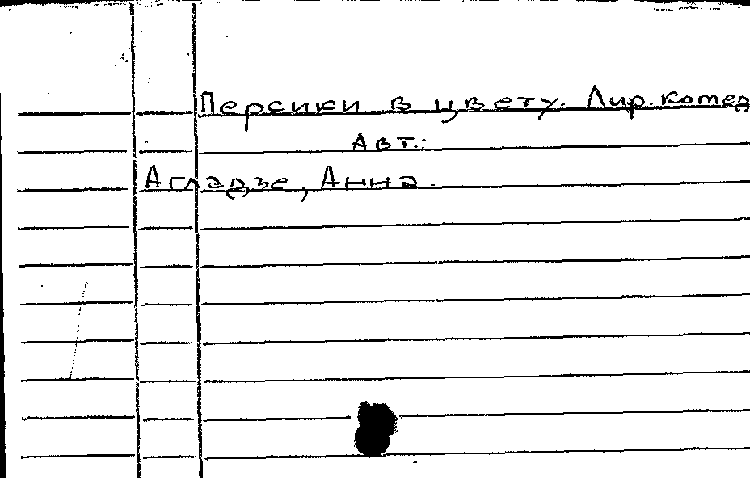 Персики в цвету. Лир. комед
Авт.:
Агладзе, Анна.